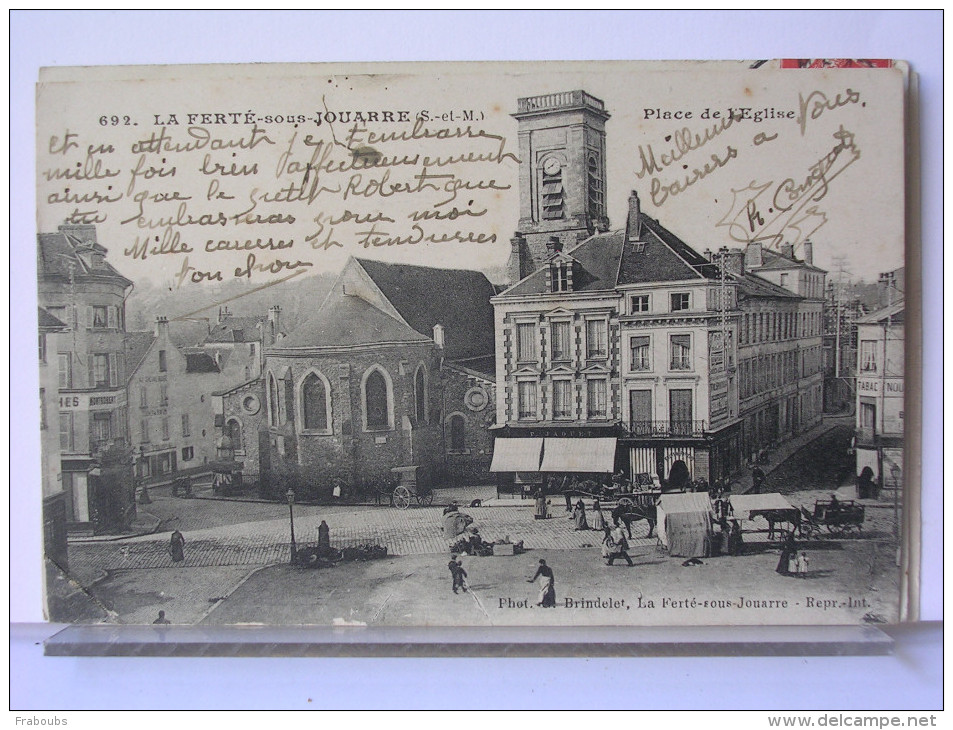 692. LA FERTÉ-sous-JOUARRE (S.-et-M.)
Place de l'Eglise
Et en attendant je t'embrasse
mille fois bien affectueusement
ainsi que le petit Robert que
tu embrasseras pour moi
Mille caresses et tendresses
ton
Meilleurs
baisers a Vous
CHES
TABAC
NOU
F. JAQUET
Phot. Brindelet, La Ferté-sous-Jouarre - Repr.-Int.
Fraboubs
www.delcampe.net